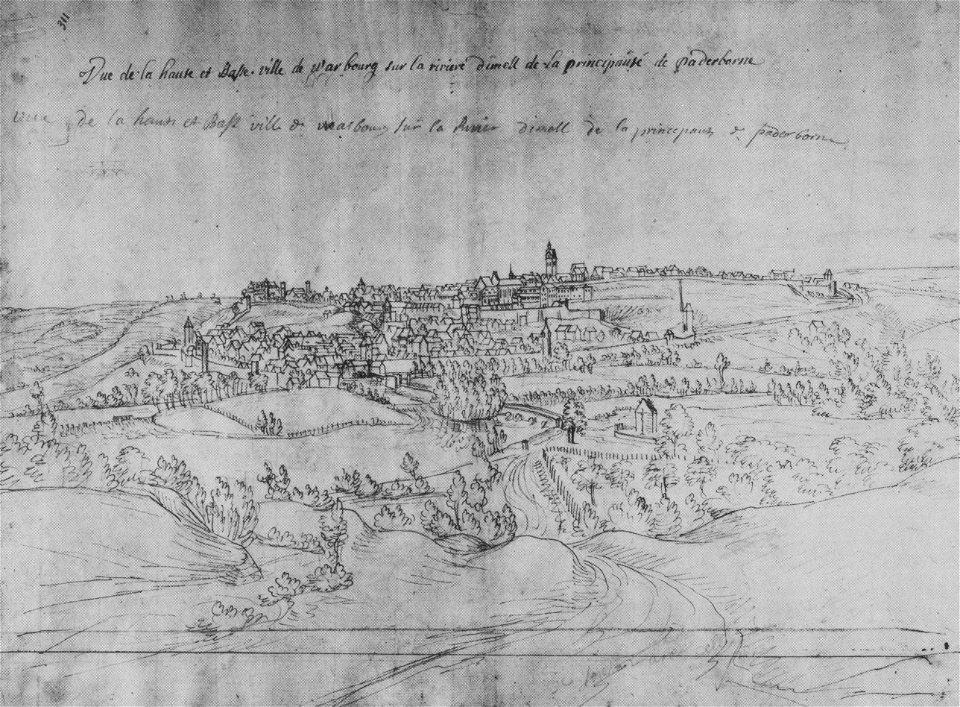 311
Vue de la haute et Basse ville de Warbourg sur la riviere dimell de la principauté de Paderborne
vue de la haute et Basse ville de warbourg sur la Rivier dimell de la principaute de paderborne